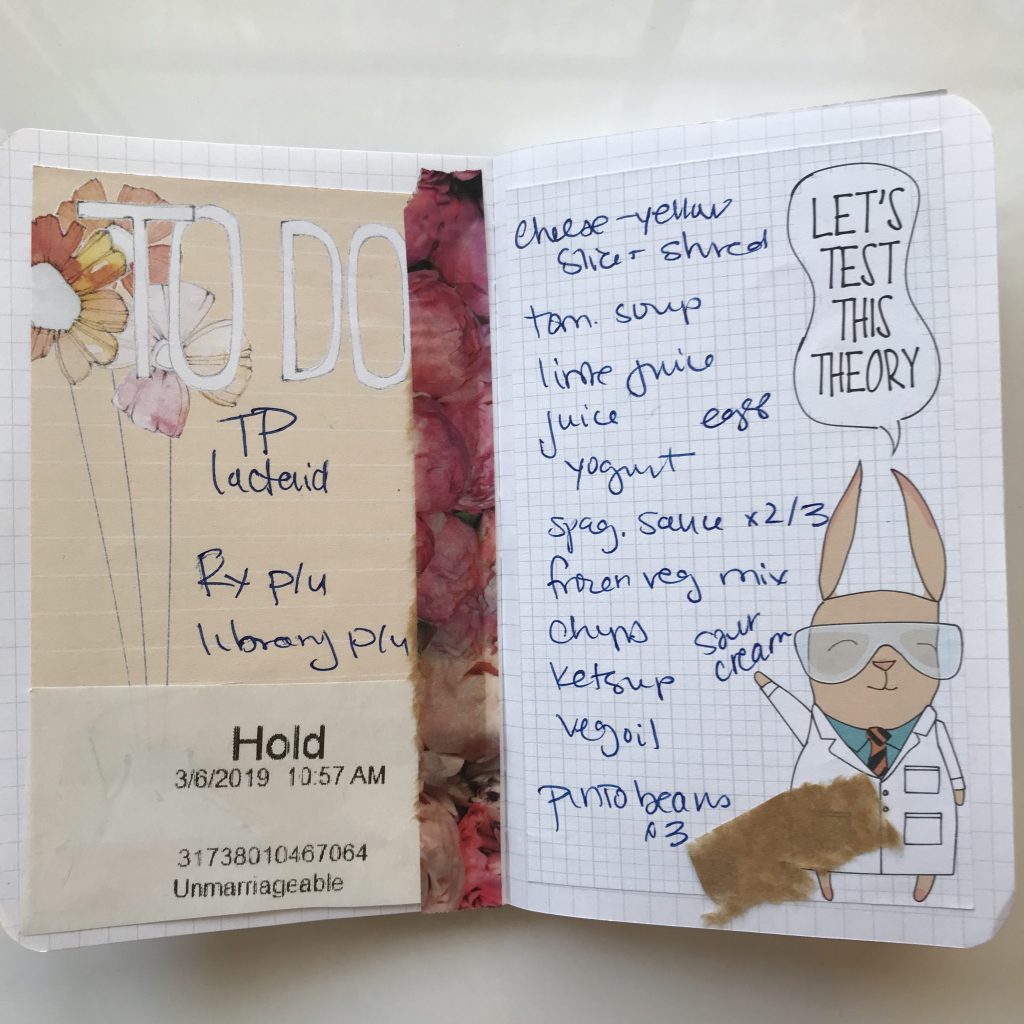 TO DO
TP
lactaid
Rx p/u
library p/u
Hold
3/6/2019 10:57 AM
31738010467064
Unmarriageable
cheese-yellow
slice + shred
tom. soup
lime juice
juice eggs
yogurt
spag. sauce x2/3
frozen veg mix
chips
sour
cream
ketsup
veg oil
pinto beans
x3
LET'S
TEST
THIS
THEORY